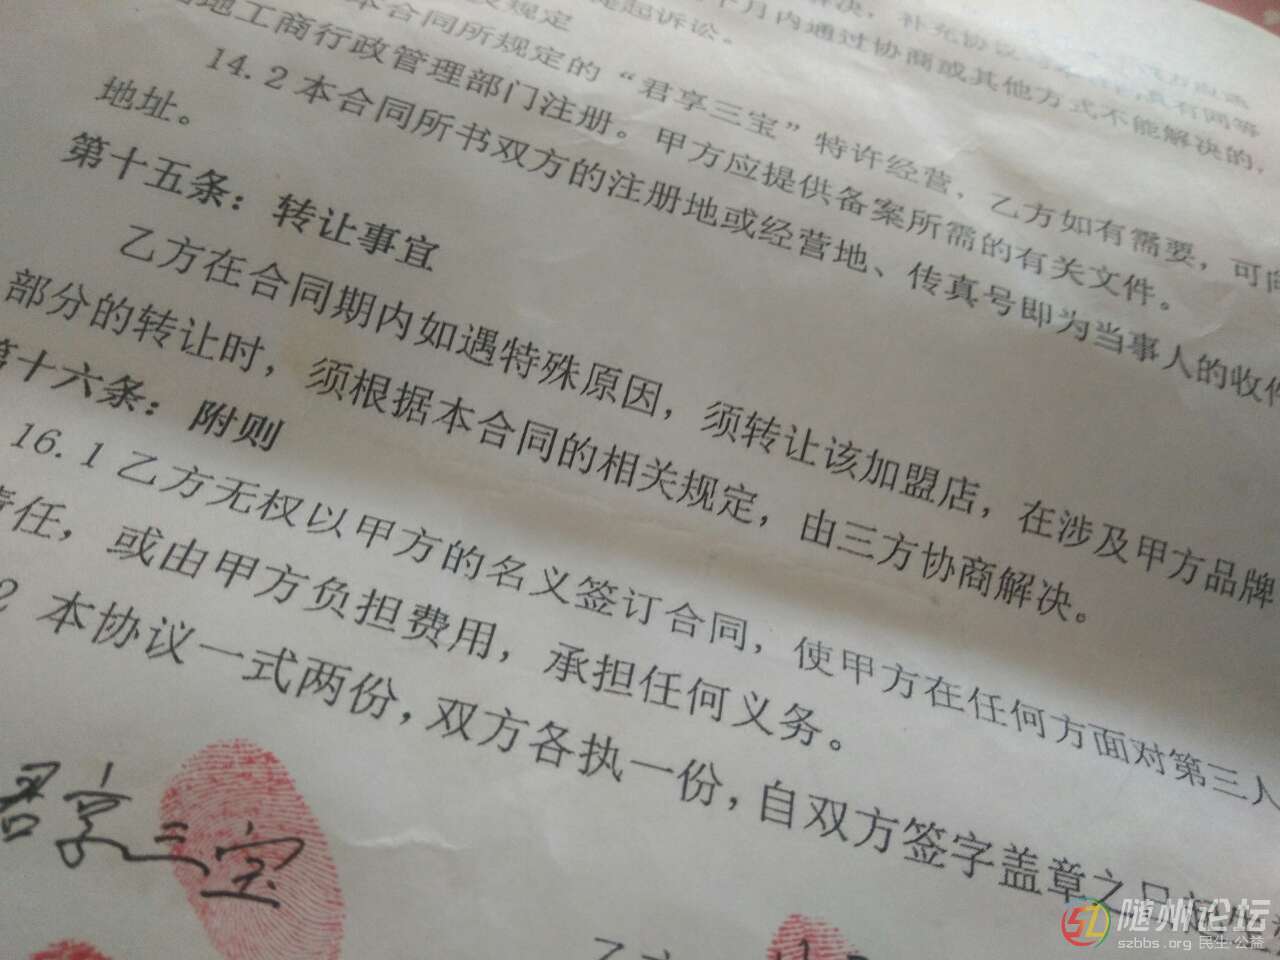 解决，补充协议
个月内通过协商或其他方式不能解决的，
起诉讼。
规定
本合同所规定的“君享三宝”特许经营，乙方如有需要，可向
地工商行政管理部门注册。甲方应提供备案所需的有关文件。
14.2本合同所书双方的注册地或经营地、传真号即为当事人的收件
地址。
第十五条：转让事宜
乙方在合同期内如遇特殊原因，须转让该加盟店，在涉及甲方品牌
部分的转让时，须根据本合同的相关规定，由三方协商解决。
第十六条：附则
16.1乙方无权以甲方的名义签订合同，使甲方在任何方面对第三人
责任，或由甲方负担费用，承担任何义务。
2 本协议一式两份，双方各执一份，自双方签字盖章之日
君享三宝
乙方
随州论坛
szbbs.org 民生·公益